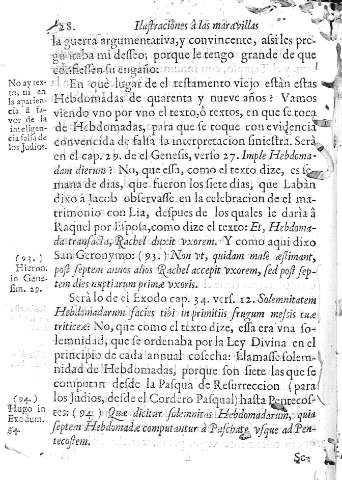 28. Ilustraciones à las maravillas
la guerra argumentativa, y convincente, assi les pre-
guntaba mi desseo, porque le tengo grande de que
confiessen su engaño.
En què lugar de el testamento viejo estàn estas
Hebdomadas de quarenta y nueve años? Vamos
viendo vno por vno el texto, ò textos, en que se toca
de Hebdomadas, para que se toque con evidencia
convencida de falsa la interpretacion siniestra. Serà
en el cap. 29. de el Genesis, verso 27. Imple Hebdoma-
dam dierum? No, que essa, como el texto dize, es se-
mana de dias, que fueron los siete dias, que Labàn
dixo à Jacob observasse en la celebracion de el ma-
trimonio con Lia, despues de los quales le daria à
Raquel por Esposa, como dize el texto: Et, Hebdoma-
da transacta, Rachel duxit vxorem. Y como aqui dixo
San Geronymo: (93.) Non vt, quidam malè æstimant,
post septem annos alios Rachel accepit vxorem, sed post sep-
tem dies nuptiarum primæ vxoris.
Serà lo de el Exodo cap. 34. vers. 12. Solemnitatem
Hebdomadarum facies tibi in primitiis frugum messis tuæ
triticeæ: No, que como el texto dize, essa era vna so-
lemnidad, que se ordenaba por la Ley Divina en el
principio de cada annual cosecha: Llamasse solem-
nidad de Hebdomadas, porque son siete las que se
computan desde la Pasqua de Resurreccion (para
los Judios, desde el Cordero Pasqual) hasta Pentecos-
tes: (94.) Quæ dicitur solemnitas Hebdomadarum, quia
septem Hebdomadæ computantur à Paschate, vsque ad Pen-
tecostem.
No ay tex-
to, ni en
la aparien-
cia à fa-
vor de la
inteligen-
cia falsa de
los Judios.
(93.)
Hieron.
in Gene-
sim. 29.
(94.)
Hugo in
Exodum.
34.